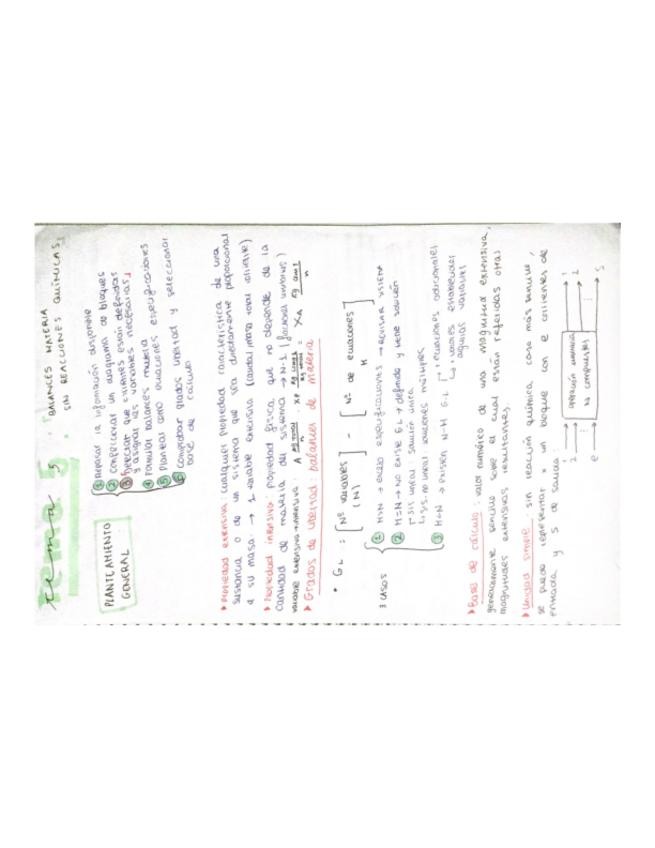 tema 5
BALANCES MATERIA
SIN REACCIONES QUÍMICAS
PLANTEAMIENTO
GENERAL
1 Repasar la información disponible
2 Confeccionar un diagrama de bloques
3 Precisar que corrientes están definidas
y asignar las variables necesarias
4 Formular balances materia
5 Plantear como ecuaciones especificaciones
6 comprobar grados libertad y seleccionar
base de cálculo
▸ Propiedad extensiva: cualquier propiedad característica de una
sustancia o de un sistema que sea directamente proporcional
a su masa. → 1 variable extensiva (caudal masa total corriente)
▸ Propiedad intensiva: propiedad física que no depende de la
cantidad de materia del sistema → N-1 (
variable extensiva → intensiva: A
▸ Grados de libertad: balances de materia
• GL = [Nº variables] - [Nº de ecuaciones]
(N) M
3 casos
1 M>N → exceso especificaciones → revisar sistema
2 M=N → No existe GL → definido y tiene solución
sis lineal: solución única
sis. no lineal: soluciones múltiples
3 M<N → existen N-M G.L
ecuaciones adicionales
valores establecidos
algunas variables
▸ Base de cálculo: valor numérico de una magnitud extensiva,
generalmente sencillo sobre el cual están referidas otras
magnitudes extensivas resultantes.
▸ Unidad simple: sin reacción química, caso más sencillo,
se puede representar x un bloque con e corrientes de
entrada y s de salida:
operación unitaria
nc compuestos
1
2
e
1
2
s